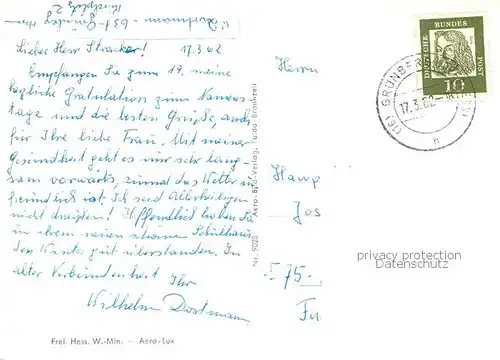 Lieber Herr Stracker! 17.3.62
Empfangen Sie zum 19. meine
herzliche Gratulation zum Namens-
tage und die besten Grüße, auch
für Ihre liebe Frau. Mit meiner
Gesundheit geht es nur sehr lang-
sam vorwärts, zumal das Wetter un-
freundlich ist. Ich seit Allerheiligen
nicht draußen! Hoffentlich haben Sie
in ihrem neuen schöne Schulhaus
den Winter gut überstanden. In
alter Verbundenheit Ihr
Wilhelm Dostmann
Frei. Hess. W.-Min. — Aero-Lux
Nr. 9028 Aero-Bild-Verlag, Fulda-Bronnzell
Herrn
Haup
Jos
575-
Fu
DEUTSCHE BUNDESPOST
10
(16) GRÜNBERG
17.3.62
h
privacy protection
Datenschutz